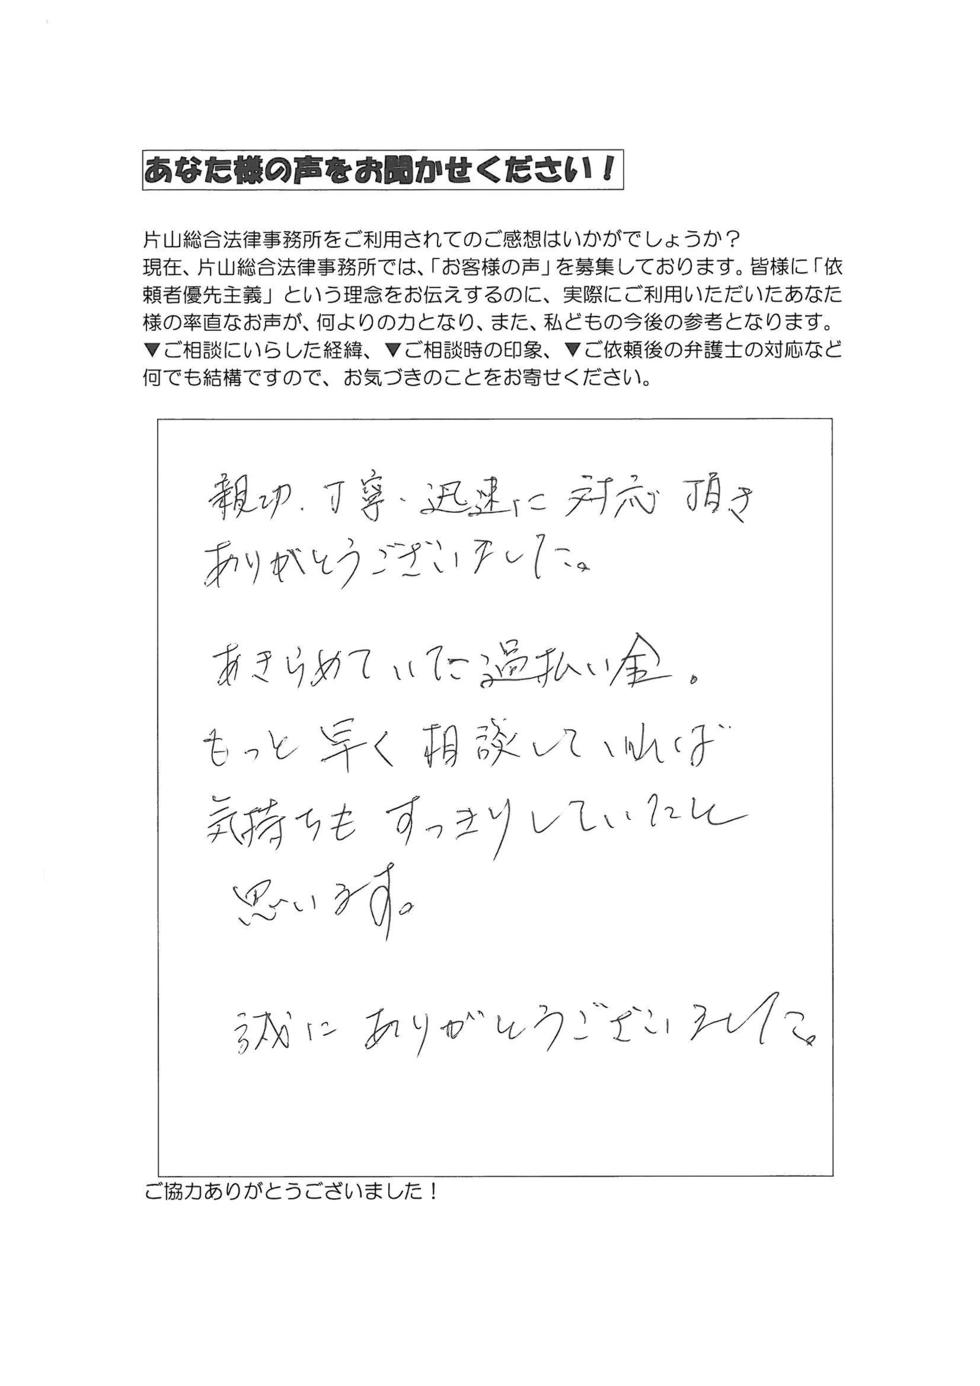 あなた様の声をお聞かせください！
片山総合法律事務所をご利用されてのご感想はいかがでしょうか？
現在、片山総合法律事務所では、「お客様の声」を募集しております。皆様に「依
頼者優先主義」という理念をお伝えするのに、実際にご利用いただいたあなた
様の率直なお声が、何よりの力となり、また、私どもの今後の参考となります。
▼ご相談にいらした経緯、▼ご相談時の印象、▼ご依頼後の弁護士の対応など
何でも結構ですので、お気づきのことをお寄せください。
親切、丁寧・迅速に 対応 頂き
ありがとうございました。
あきらめていた過払い金。
もっと 早く 相談していれば
気持ちも すっきりしていたと
思います。
誠に ありがとうございました。
ご協力ありがとうございました！